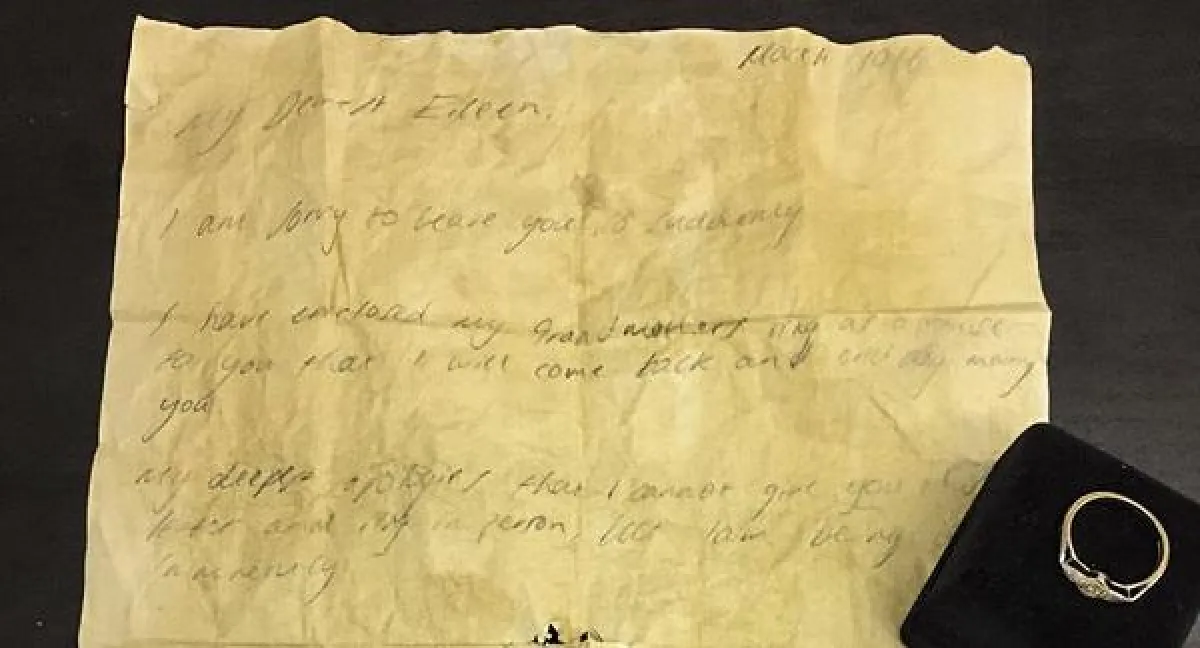 March 1916
My Dearest Eileen,
I am sorry to leave you so suddenly
I have enclosed my Grandmothers ring as a promise
to you that I will come back and one day marry
you
My deepest apologies that I cannot give you this
letter and ring in person, but I am being
immensely